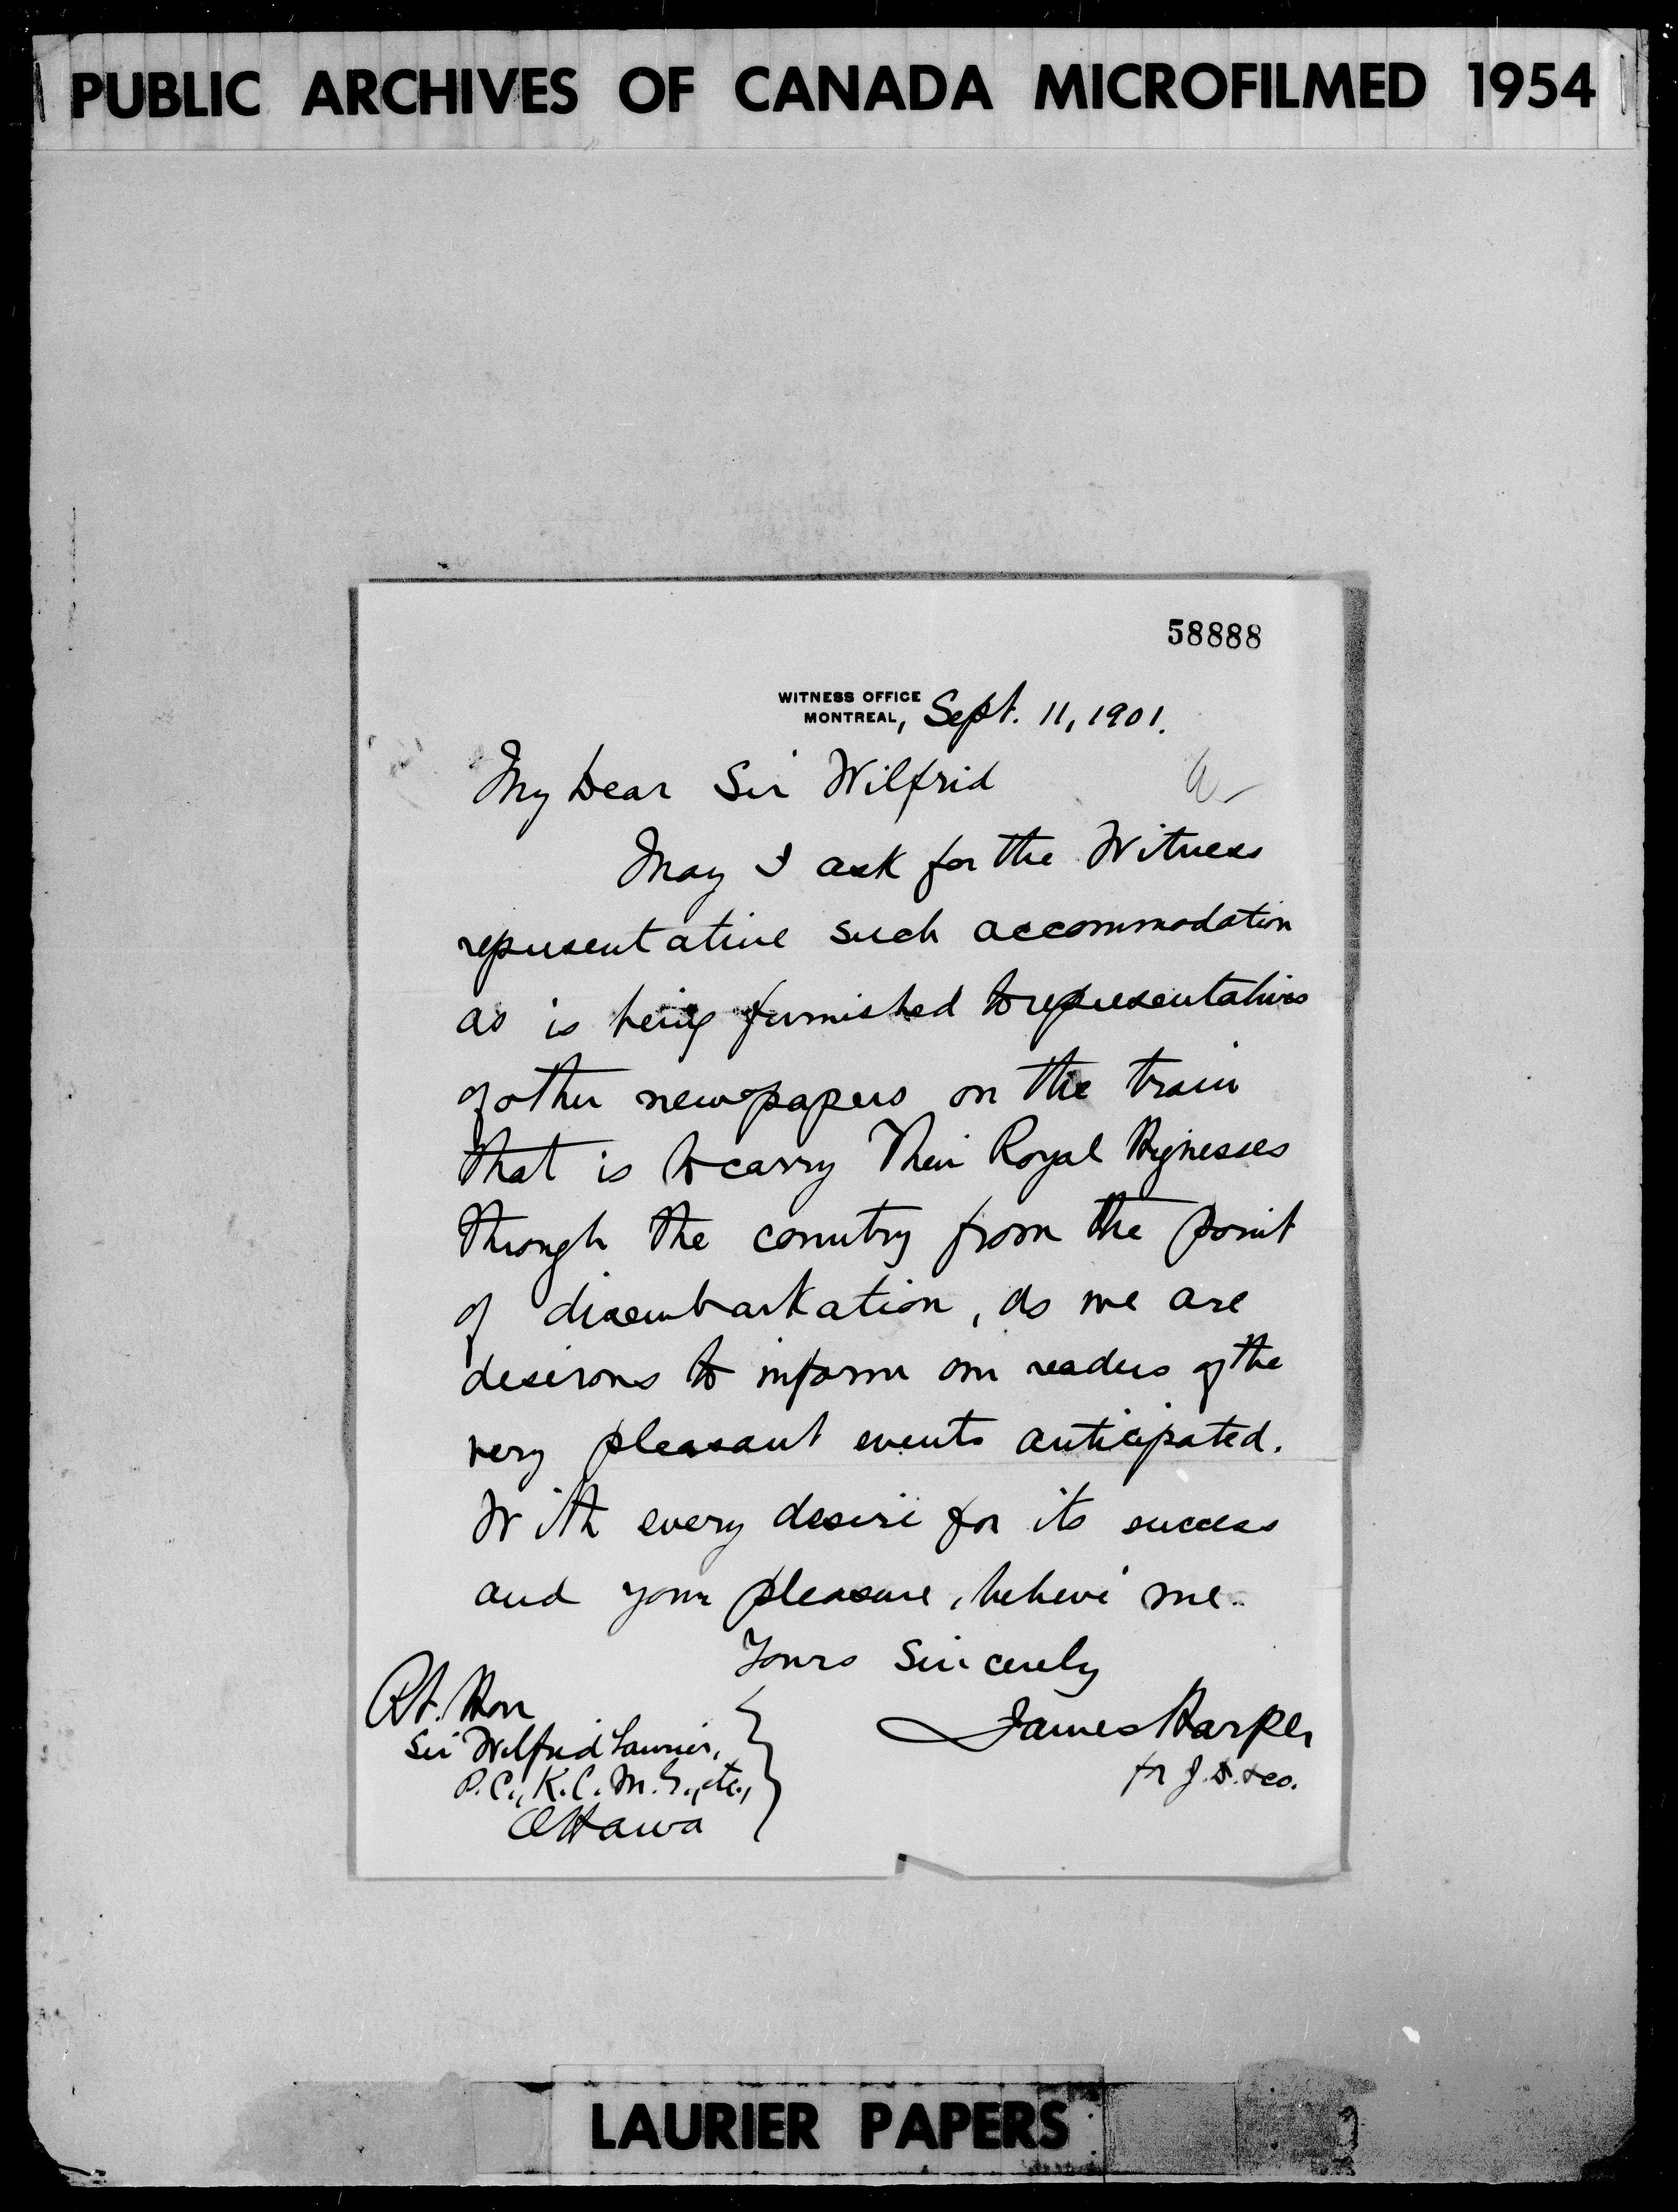 PUBLIC ARCHIVES OF CANADA MICROFILMED 1954
58888
WITNESS OFFICE
MONTREAL, Sept. 11, 1901.
My Dear Sir Wilfrid
May I ask for the Witness
representative such accommodation
as is being furnished to representatives
of other newspapers on the train
that is to carry Their Royal Hignesses
through the country from the point
of disembarkation, as we are
desirous to inform our readers of the
very pleasant events anticipated.
With every desire for its success
and your pleasure, believe me.
Yours Sincerely
James Harper
for J. D. & co.
Rt. Hon
Sir Wilfrid Laurier,
P.C., K.C.M.G., etc.,
Ottawa
LAURIER PAPERS